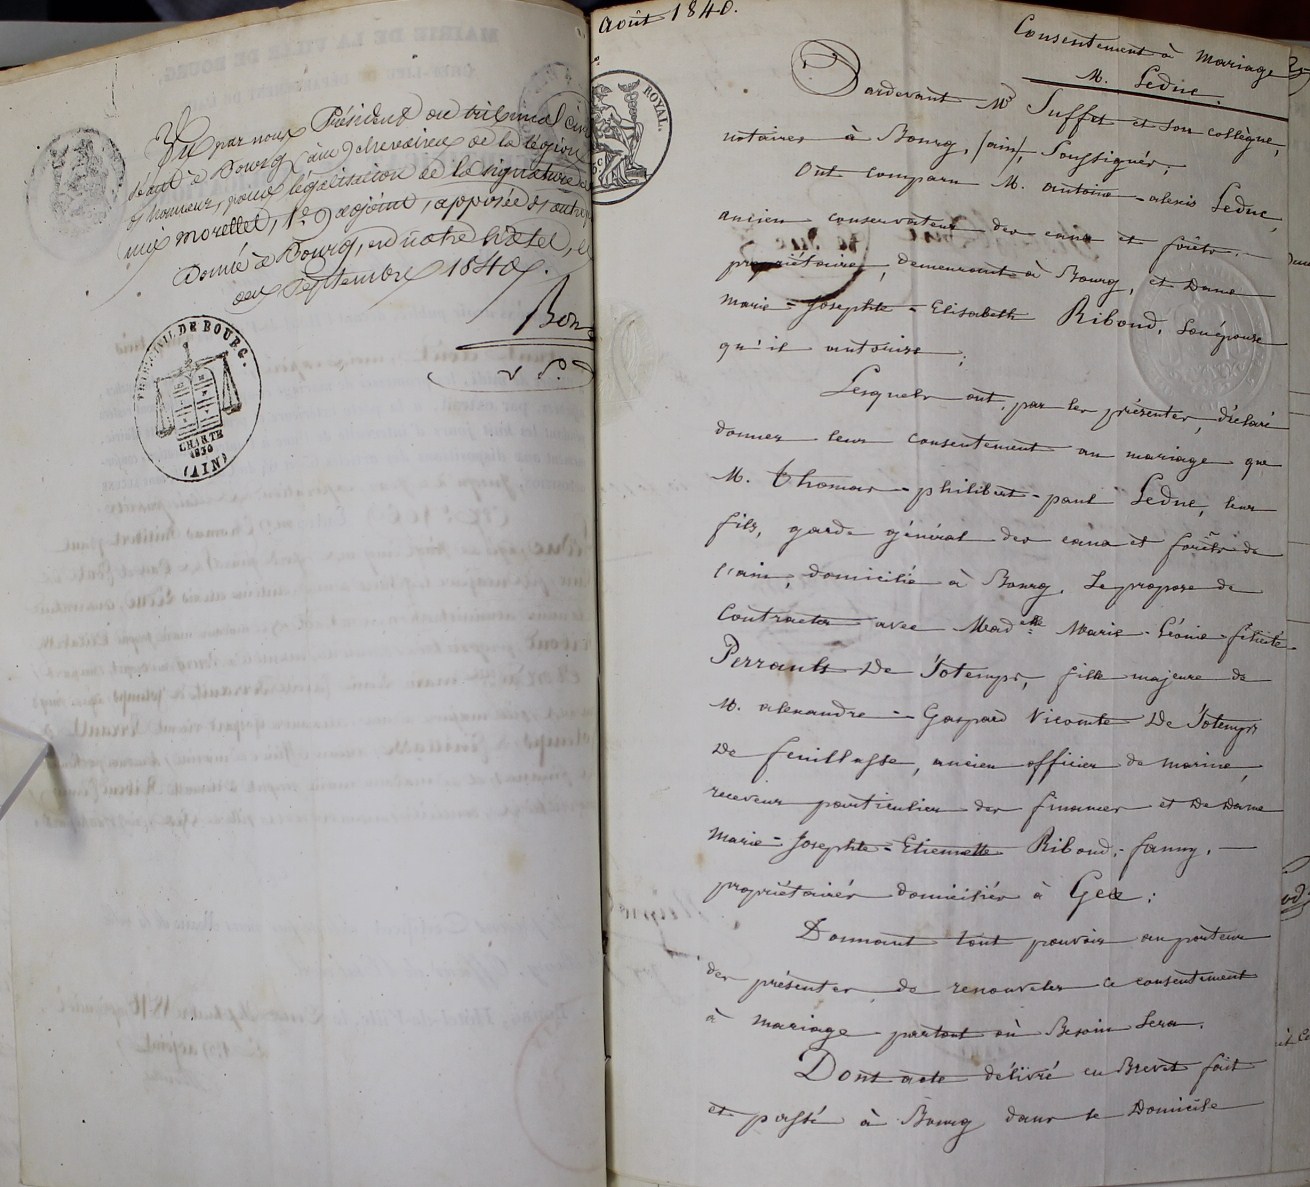 Vu par nous Président du tribunal civ
séant à Bourg (ain) chevalier de la légion
d'honneur, pour légalisation de la signature de
Morellet, 1er adjoint, apposée d'autre
Donné à Bourg, en notre hôtel, le
deux Septembre 1840.
Bon
v. P.
TRIBUNAL CIVIL DE BOURG.
CHARTE
1830
(AIN)
Août 1840.
Consentement à Mariage
M. Leduc.
ROYAL.
Pardevant Me Suffet et son collègue,
notaires à Bourg, (ain), Soussignés;
Ont Comparu M. antoine-alexis Leduc,
ancien conservateur des eaux et forêts,
propriétaire, demeurant à Bourg, et Dame
Marie=Josephte=Elisabeth Riboud, Son épouse
qu'il autorise;
Lesquels ont, par les présentes, déclaré
donner leur consentement au mariage que
M. thomas-philibert-paul Leduc, leur
fils, garde général des eaux et forêts de
l'ain, domicilié à Bourg, Se propose de
Contracter avec Madelle Marie-Léonie-félicité-
Perrault De Jotemps, fille majeure de
M. alexandre=Gaspard Vicomte De Jotemps
De feuillasse, ancien officier de marine,
receveur particulier des finances et De Dame
Marie=Josephte=Etiennette Riboud; fanny,
propriétaires domiciliés à Gex;
Donnant tout pouvoir au porteur
des présentes, de renouveler ce consentement
à mariage partout où Besoin Sera.
Dont acte délivré en Brevet fait
et passé à Bourg dans le Domicile